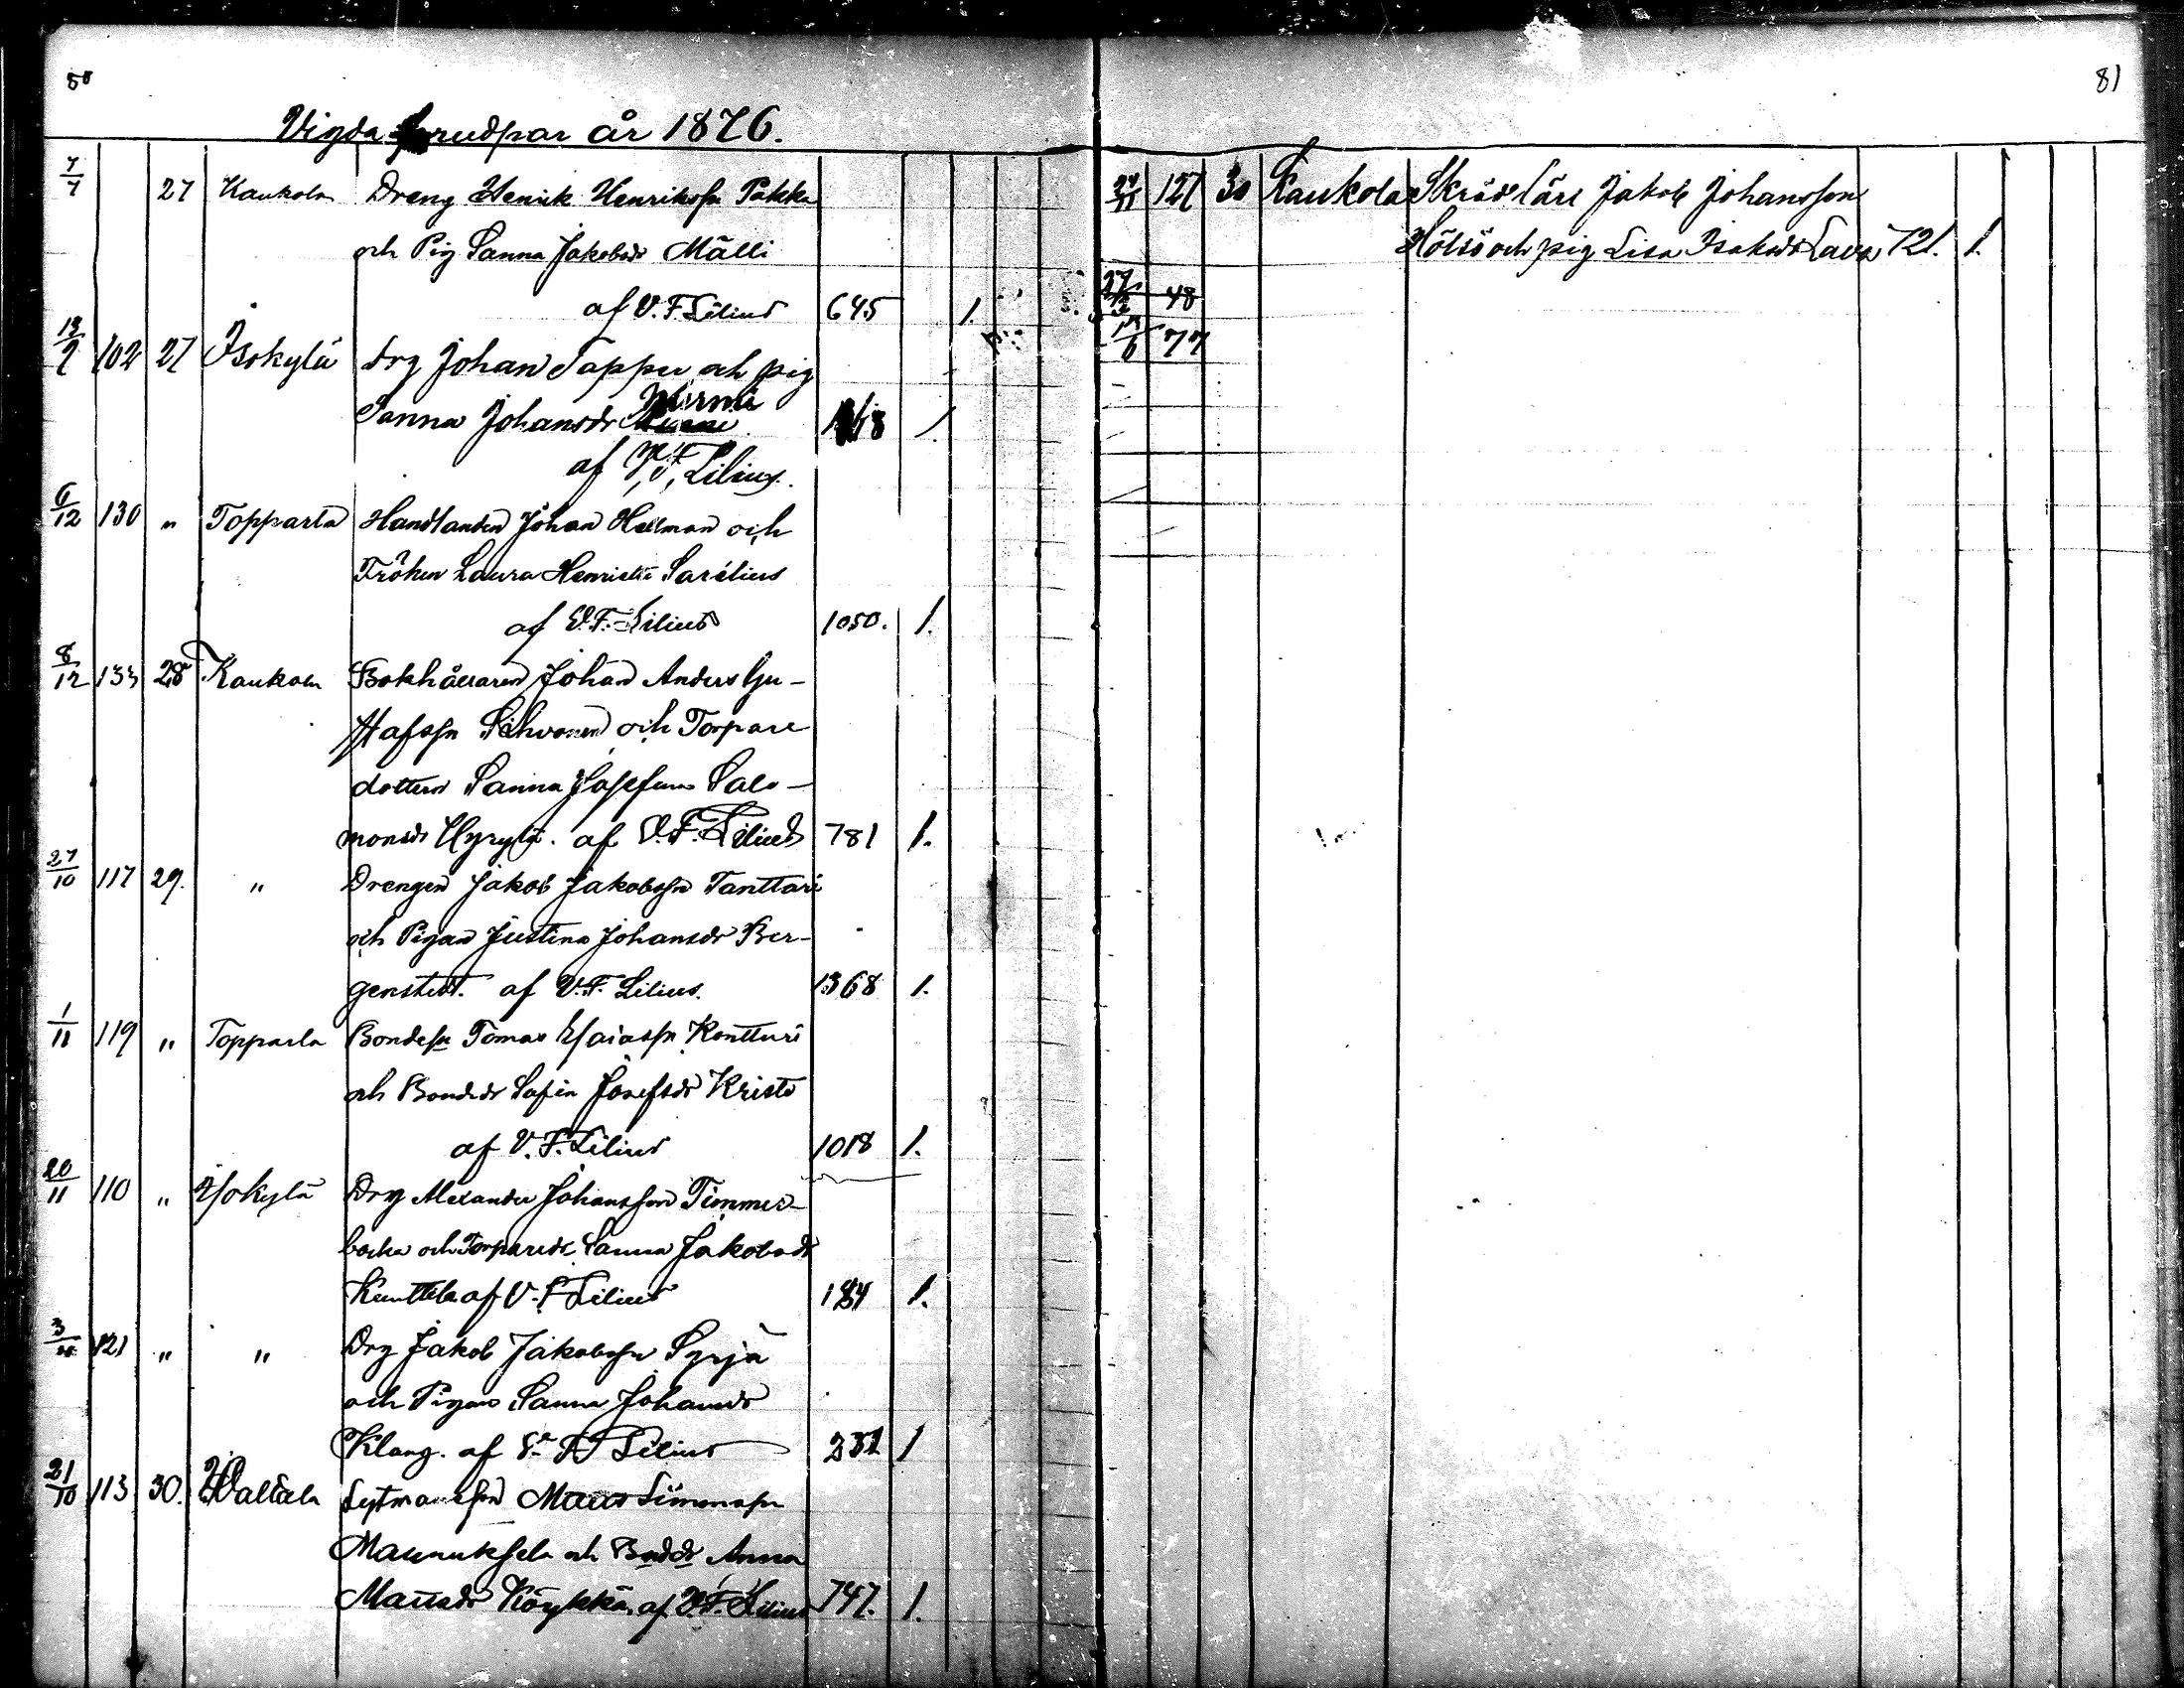 80
Vigda brudpar år 1876.
7/7 27 Kaukola Dreng Henrik Henrikssn Pakka
och Pig Sanna Jakobsdr Mälli
af V. F. Lilius 645 1.
102 27 Isokylä drg Johan Tapper och pig
Sanna Johansdr
af V. F. Lilius.
6/12 130 " Topparla Handlanden Johan Hellman och
Fröken Laura Henriette Sarélius
af V. F. Lilius 1050. 1.
8/12 133 28 Kaukola Bokhållaren Johan Anders Gu-
stafssn Sihvonen och Torpare
dottern Sanna Josefina Salo-
monsdr Hyrylä. af V. F. Lilius 781 1.
27/10 117 29. " Drengen Jakob Jakobssn Tanttari
och Pigan Justina Johansdr Ber-
genstedt. af V. F. Lilius. 1368 1.
1/11 119 " Topparla Bondesn Tomas Esaiassn Kontturi
och Bondedr Sofia Josefsdr Kristo
af V. F. Lilius 1018 1.
20/11 110 " Isokylä Drg Alexander Johansson Timmer-
backa och Torparedr Sanna Jakobsdr
Kunttila af V. F. Lilius 184 1.
121 " " Drg Jakob Jakobssn Syrjä
och Pigan Sanna Johansdr
Klang. af V. F. Lilius 231 1
21/10 113 30. Wallala Leytmansson Matts Simonssn
Maunuksela och Bondedr Anna
Mattsdr Köykkä. af V. F. Lilius 747. 1.
81
127 30 Kaukola Skräd lärl Jakob Johansson
Hölsö och pig Lisa Isaksdr Lava 721. 1.
48
77